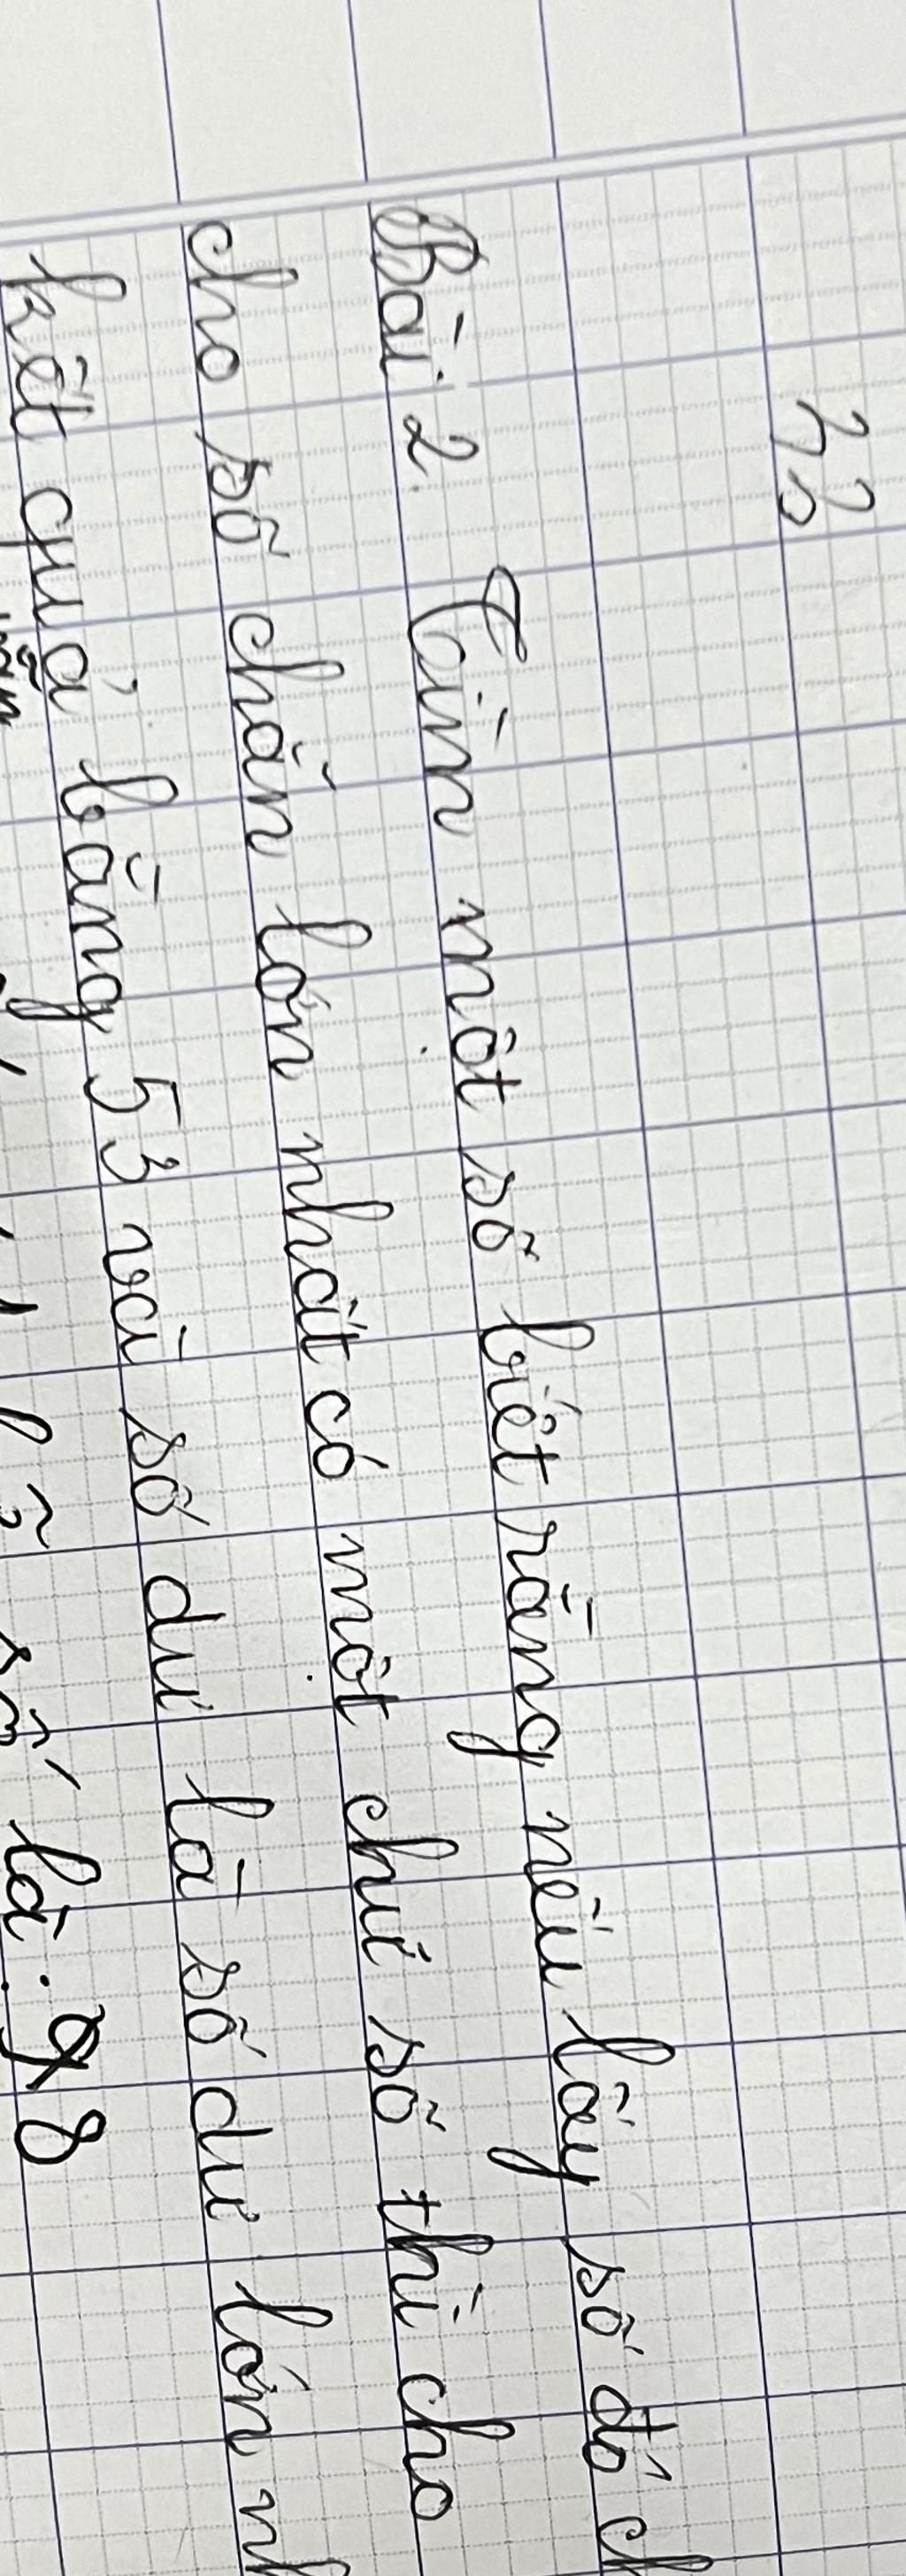 33
Bài 2 Tìm một số biết rằng nếu lấy số đó
cho số chẵn lớn nhất có một chữ số thì cho
kết quả bằng 53 và số dư là số dư lớn
số là: 98